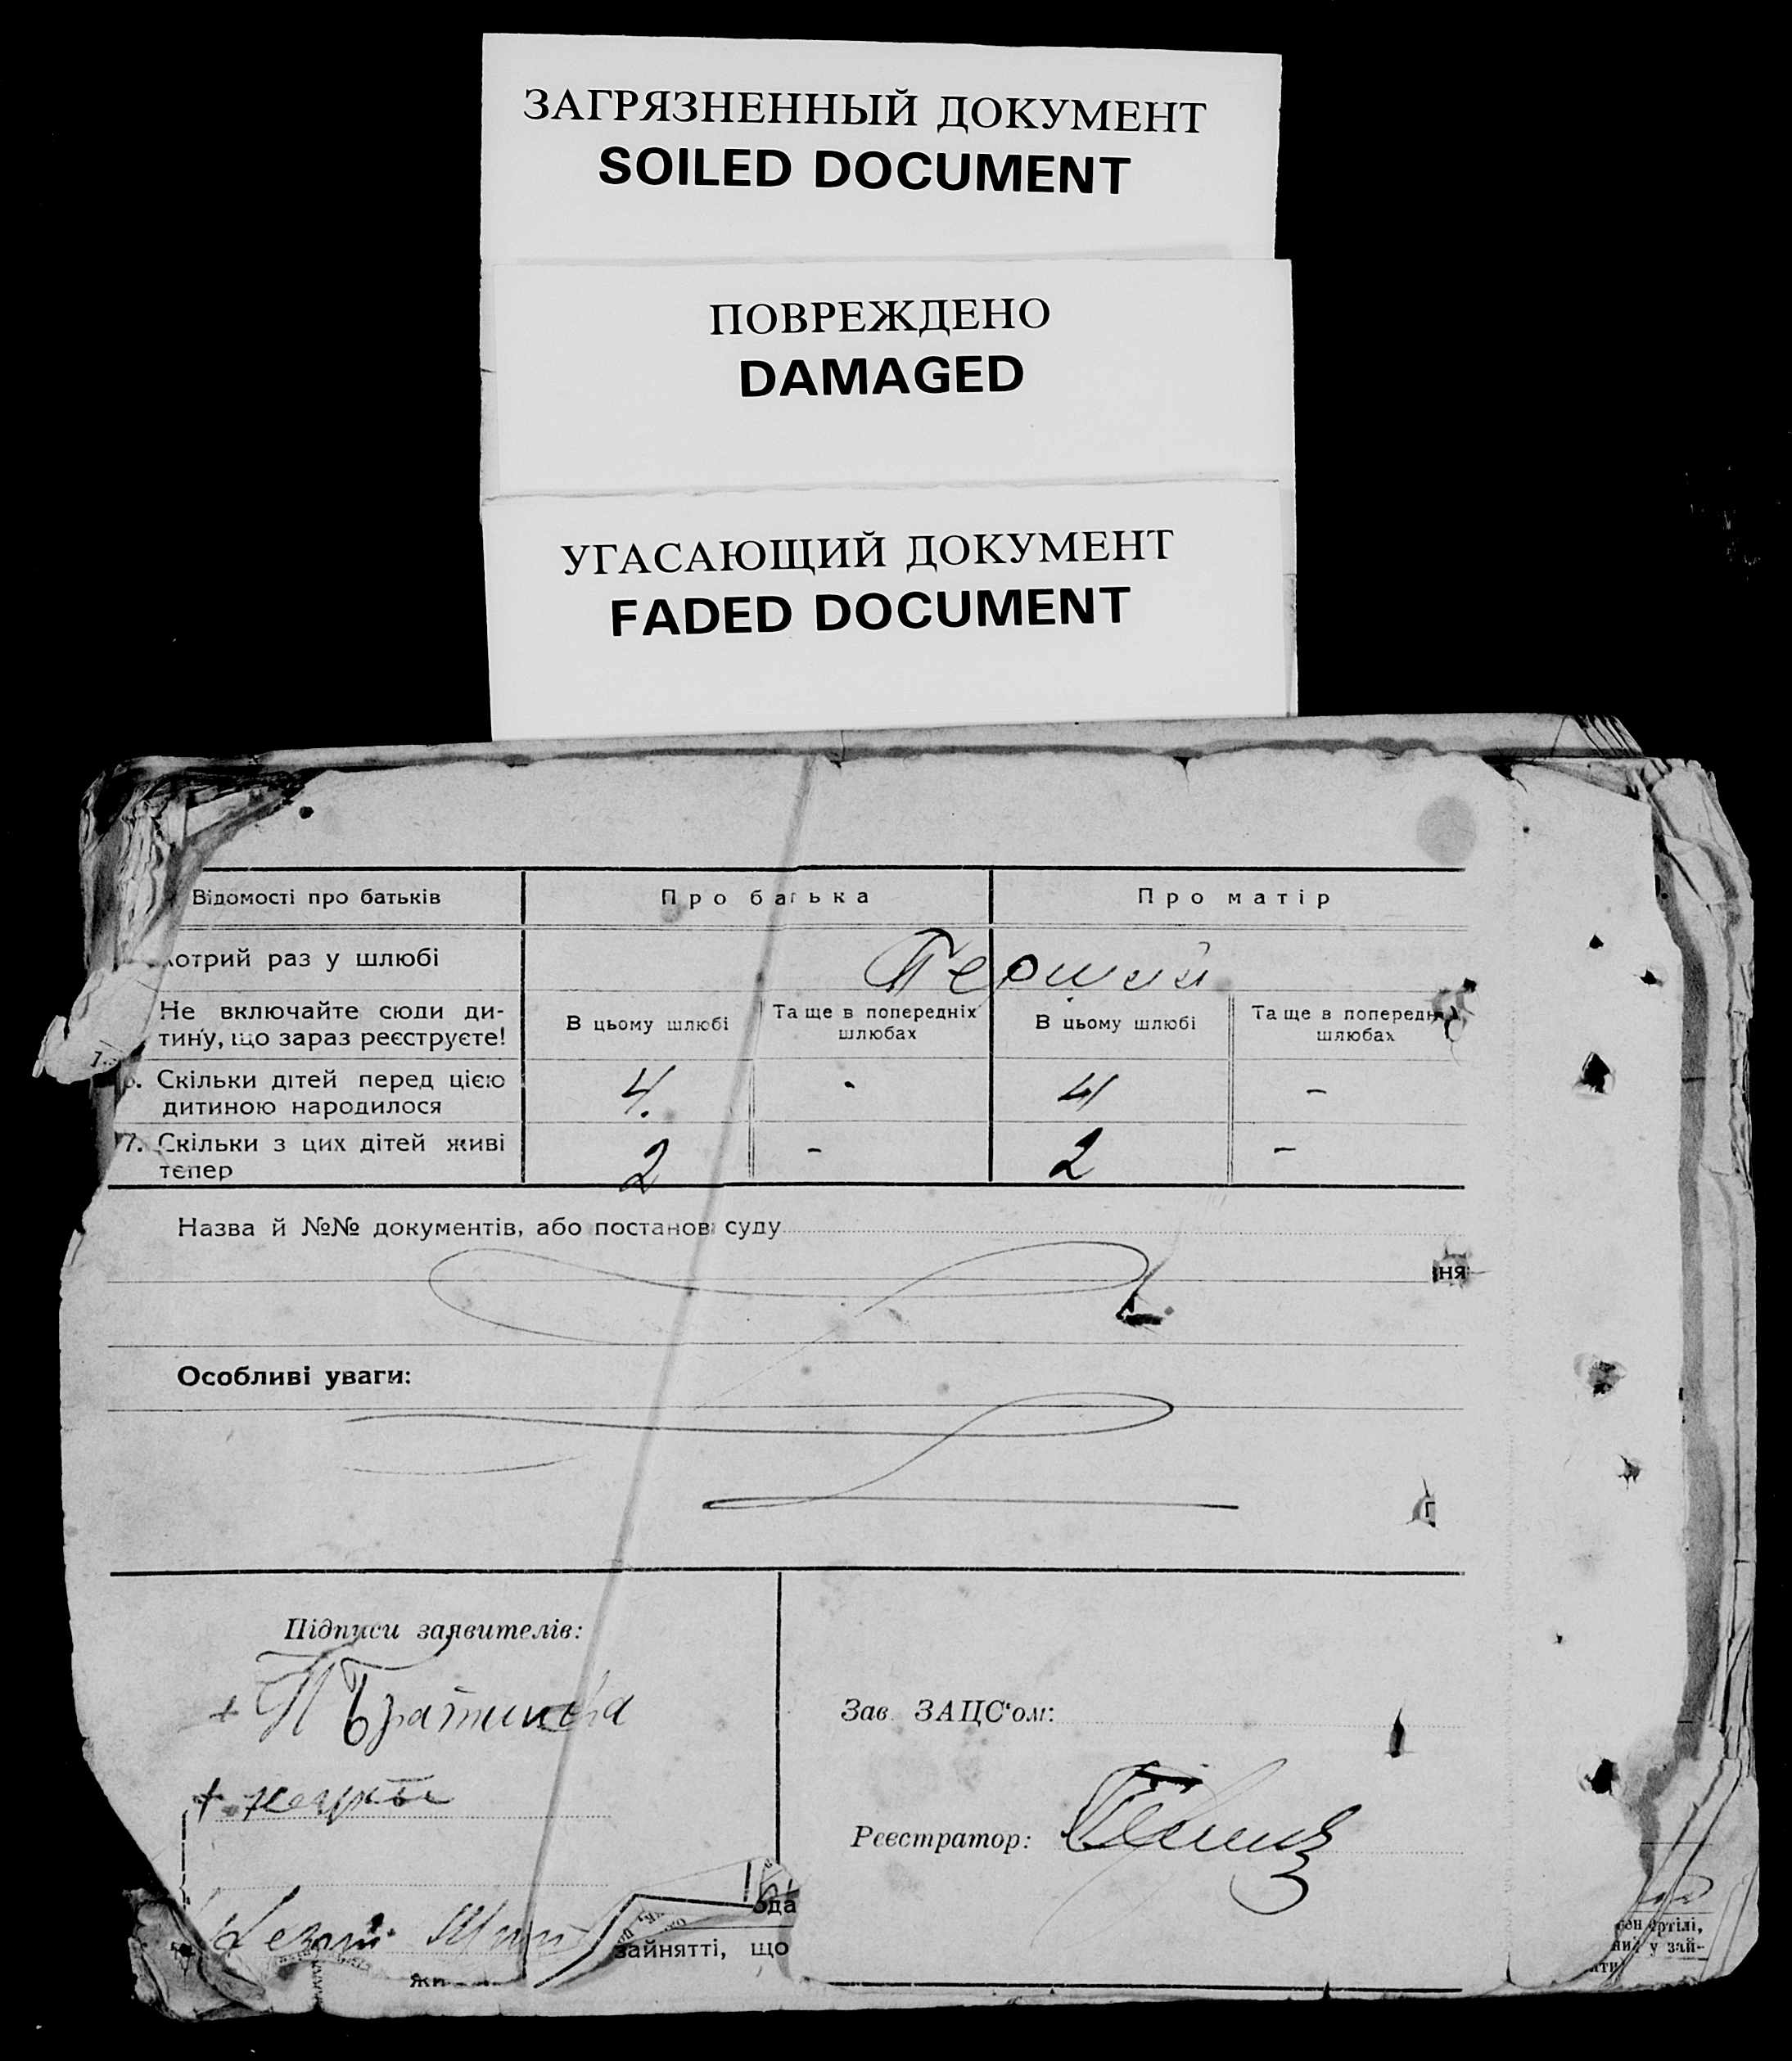 ЗАГРЯЗНЕННЫЙ ДОКУМЕНТ
SOILED DOCUMENT
ПОВРЕЖДЕНО
DAMAGED
УГАСАЮЩИЙ ДОКУМЕНТ
FADED DOCUMENT
Відомості про батьків
Про батька
Про матір
котрий раз у шлюбі
Перший
Не включайте сюди ди-
тину, що зараз реєструєте!
В цьому шлюбі
Та ще в попередніх
шлюбах
В цьому шлюбі
Та ще в попередн
шлюбах
6. Скільки дітей перед цією
дитиною народилося
4.
-
4
-
7. Скільки з цих дітей живі
тепер
2
-
2
-
Назва й №№ документів, або постанов суду
ня
Особливі уваги:
Г
Підписи заявителів:
Зав. ЗАЦС'ом:
Реєстратор:
ода
зайнятті, що
жи
ен артілі,
ний у зай-
ати